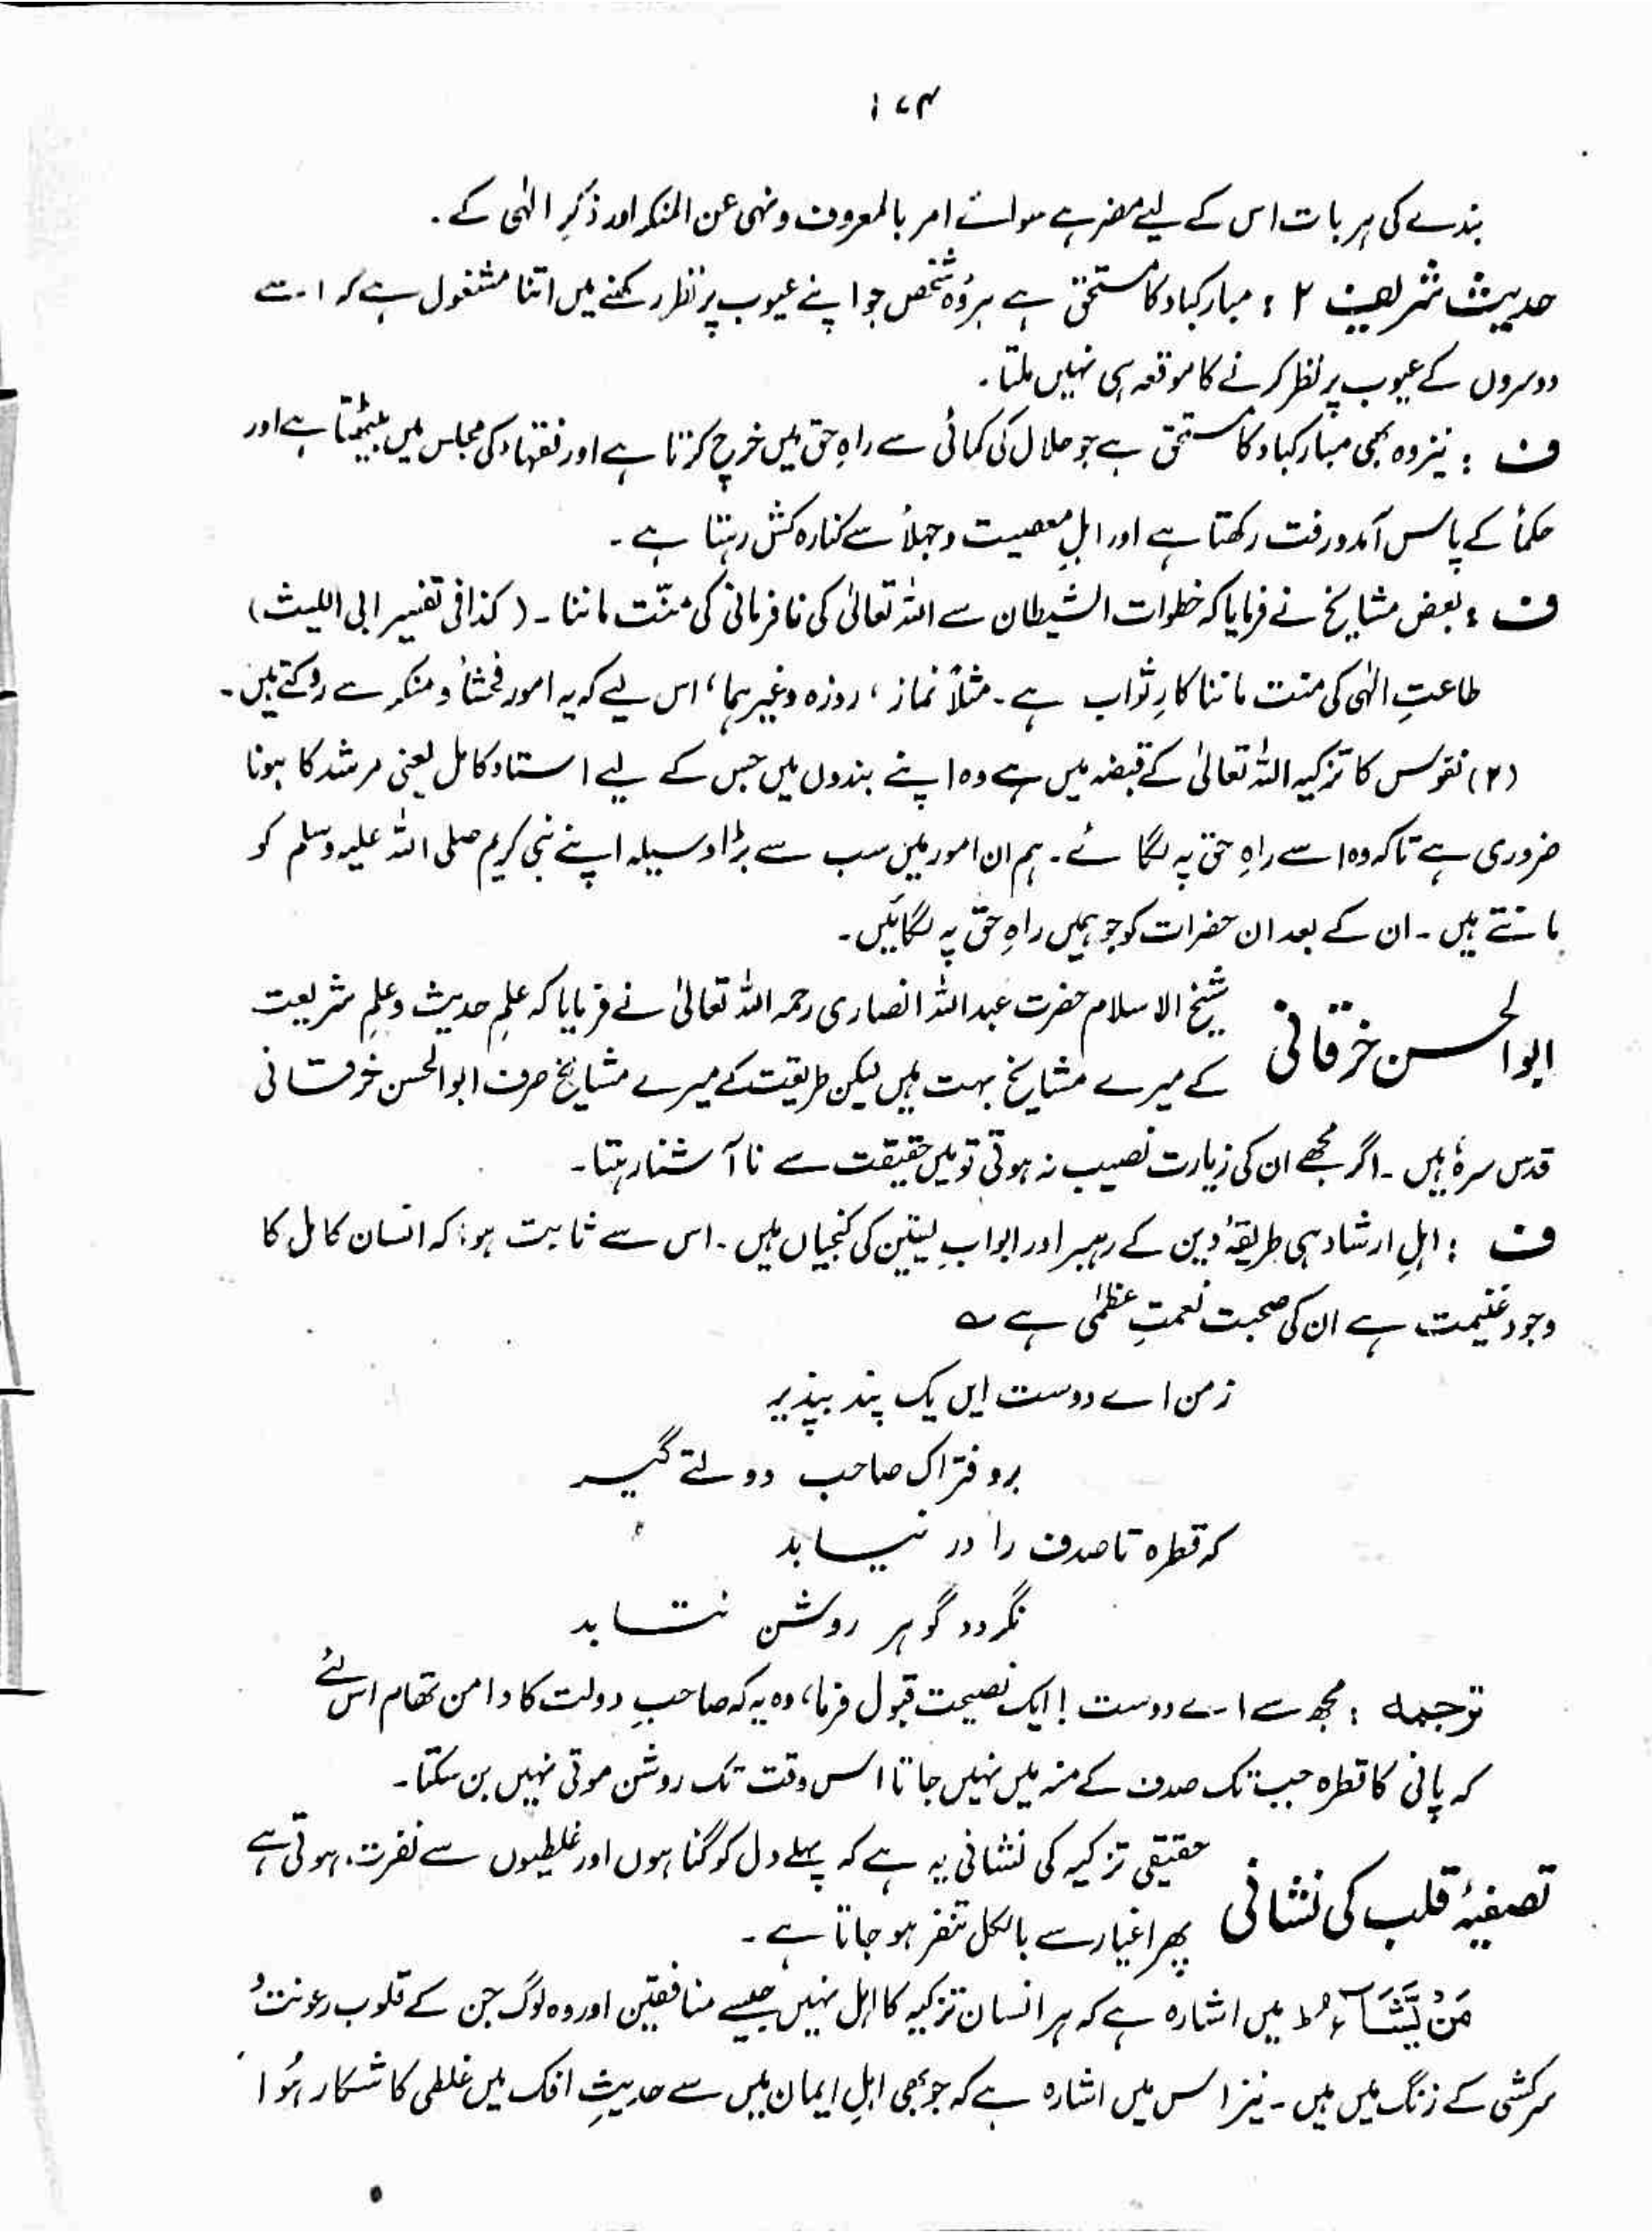 ۱۷۴
بندے کی ہر بات اس کے لیے مضر ہے سوائے امر بالمعروف و نہی عن المنکر اور ذکرِ الٰہی کے ۔
حدیث شریف ۲ : مبارکباد کا مستحق ہے ہر وُہ شخص جو اپنے عیوب پر نظر رکھنے میں اتنا مشغول ہے کہ اسے
دوسروں کے عیوب پر نظر کرنے کا موقعہ ہی نہیں ملتا ۔
ف : نیز وہ بھی مبارکباد کا مستحق ہے جو حلال کی کمائی سے راہِ حق میں خرچ کرتا ہے اور فقہاء کی مجلس میں بیٹھتا ہے اور
حکمأ کے پاس آمدورفت رکھتا ہے اور اہلِ معصیت و جہلأ سے کنارہ کش رہتا ہے ۔
ف : بعض مشایخ نے فرمایا کہ خطوات الشیطان سے اللہ تعالیٰ کی نافرمانی کی منّت ماننا ۔ (کذافی تفسیر ابی اللیث)
طاعتِ الٰہی کی منت ماننا کارِ ثواب ہے ۔ مثلاً نماز ، روزہ وغیرہما ، اس لیے کہ یہ امور فحشأ و منکر سے روکتے ہیں ۔
(۲) نفوس کا تزکیہ اللہ تعالیٰ کے قبضہ میں ہے وہ اپنے بندوں میں جس کے لیے استاد کامل یعنی مرشد کا ہونا
ضروری ہے تاکہ وہ اسے راہِ حق پہ لگائے ۔ ہم ان امور میں سب سے بڑا وسیلہ اپنے نبی کریم صلی اللہ علیہ وسلم کو
مانتے ہیں ۔ ان کے بعد ان حضرات کو جو ہمیں راہِ حق پہ لگائیں ۔
ابوالحسن خرقانی شیخ الاسلام حضرت عبداللہ انصاری رحمہ اللہ تعالیٰ نے فرمایا کہ علمِ حدیث و علمِ شریعت
کے میرے مشایخ بہت ہیں لیکن طریقت کے میرے مشایخ صرف ابوالحسن خرقانی
قدس سرہٗ ہیں ۔ اگر مجھے ان کی زیارت نصیب نہ ہوتی تو میں حقیقت سے ناآشنا رہتا ۔
ف : اہلِ ارشاد ہی طریقۂ دین کے رہبر اور ابوابِ یقین کی کنجیاں ہیں ۔ اس سے ثابت ہوا کہ انسان کامل کا
وجود غنیمت ہے ان کی صحبت نعمتِ عظمٰی ہے ؎
زمن اے دوست ایں یک پند بپذیر
برو فتراک صاحب دولتے گیر
کہ قطرہ تا صدف را در نیابد
نگردد گوہر روشن نتابد
ترجمہ : مجھ سے اے دوست ! ایک نصیحت قبول فرما ، وہ یہ کہ صاحبِ دولت کا دامن تھام اس لئے
کہ پانی کا قطرہ جب تک صدف کے منہ میں نہیں جاتا اس وقت تک روشن موتی نہیں بن سکتا ۔
تصفیۂ قلب کی نشانی حقیقی تزکیہ کی نشانی یہ ہے کہ پہلے دل کو گناہوں اور غلطیوں سے نفرت ہوتی ہے
پھر اغیار سے بالکل متنفر ہو جاتا ہے ۔
مَنْ یَّشَآءُ ط میں اشارہ ہے کہ ہر انسان تزکیہ کا اہل نہیں جیسے منافقین اور وہ لوگ جن کے قلوب رعونت و
سرکشی کے زنگ میں ہیں ۔ نیز اس میں اشارہ ہے کہ جو بھی اہلِ ایمان میں سے حدیثِ افک میں غلطی کا شکار ہُوا